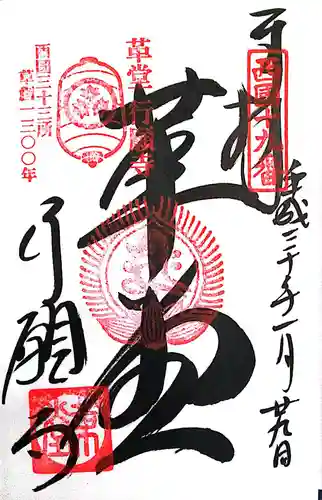 奉拝
西国十九番
平成三十年一月廿九日
革堂行願寺
革堂
西國三十三所
草創一三〇〇年
行願寺